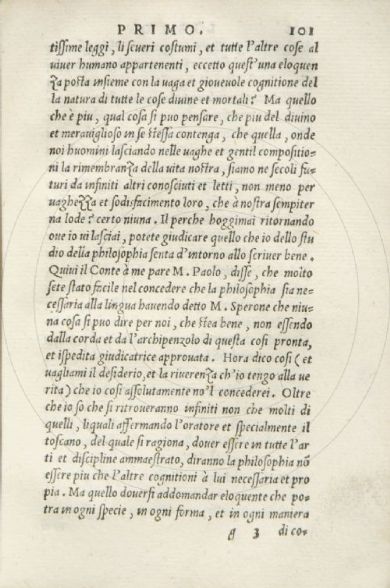 PRIMO. 101
tissime leggi, li seueri costumi, et tutte l'altre cose al
uiuer humano appartenenti, eccetto quest'una eloquen
za posta insieme con la uaga et gioueuole cognitione del
la natura di tutte le cose diuine et mortali? Ma quello
che è piu, qual cosa si puo pensare, che piu del diuino
et merauiglioso in se stessa contenga, che quella, onde
noi huomini lasciando nelle uaghe et gentil compositio=
ni la rimembranza della uita nostra, siamo ne secoli fu=
turi da infiniti altri conosciuti et letti, non meno per
uaghezza et sodisfacimento loro, che à nostra sempiter
na lode? certo niuna. Il perche hoggimai ritornando
oue io ui lasciai, potete giudicare quello che io dello stu
dio della philosophia senta d'intorno allo scriuer bene.
Quiui il Conte à me pare M. Paolo, disse, che molto
sete stato facile nel concedere che la philosophia sia ne=
cessaria alla lingua hauendo detto M. Sperone che niu=
na cosa si puo dire per noi, che stea bene, non essendo
dalla corda et da l'archipenzolo di questa cosi pronta,
et ispedita giudicatrice approuata. Hora dico cosi (et
uagliami il desiderio, et la riuerenza ch'io tengo alla ue
rita) che io cosi assolutamente no'l concederei. Oltre
che io so che si ritroueranno infiniti non che molti di
quelli, liquali affermando l'oratore et specialmente il
toscano, del quale si ragiona, douer essere in tutte l'ar
ti et discipline ammaestrato, diranno la philosophia nõ
essere piu che l'altre cognitioni à lui necessaria et pro
pia. Ma quello douersi addomandar eloquente che po=
tra in ogni specie, in ogni forma, et in ogni maniera
g 3 di co=